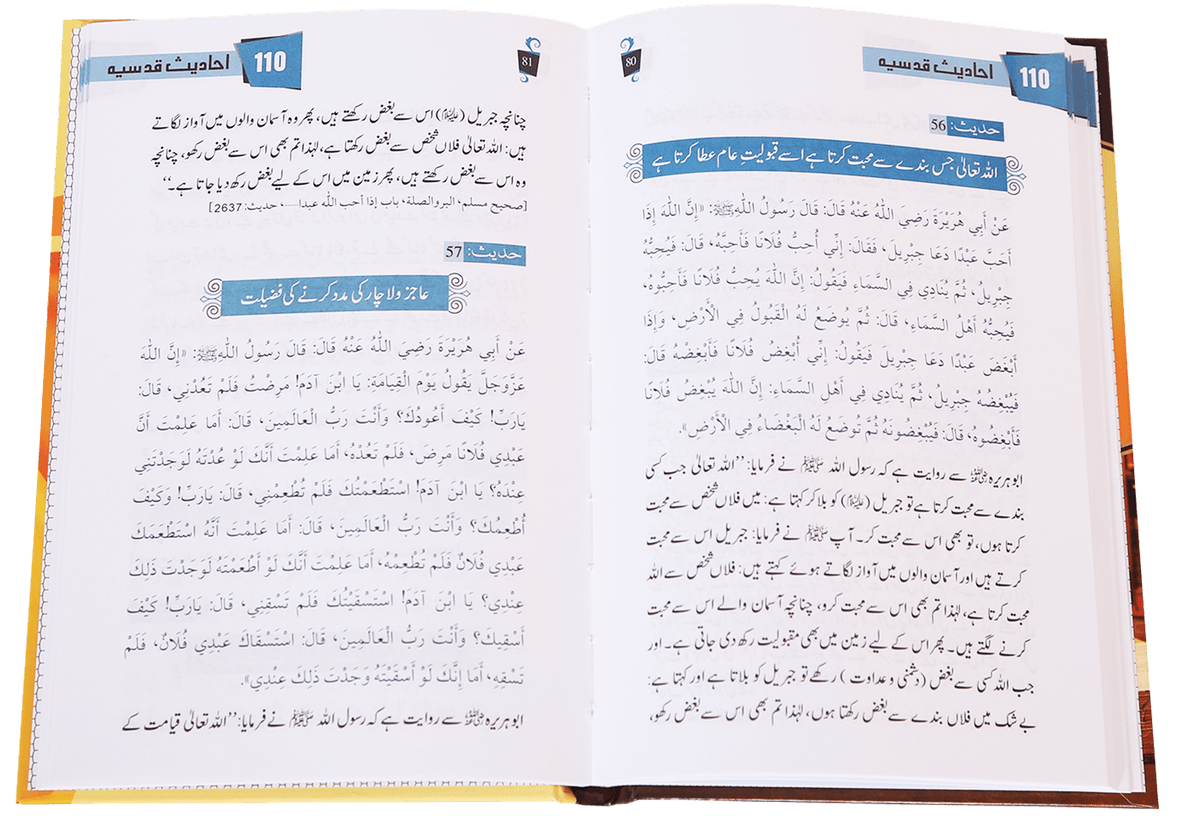 110 احادیث قدسیہ
80
حدیث: 56
اللہ تعالیٰ جس بندے سے محبت کرتا ہے اسے قبولیتِ عام عطا کرتا ہے
عَنْ أَبِي هُرَيْرَةَ رَضِيَ اللّٰهُ عَنْهُ قَالَ: قَالَ رَسُولُ اللّٰهِ ﷺ: «إِنَّ اللّٰهَ إِذَا
أَحَبَّ عَبْدًا دَعَا جِبْرِيلَ، فَقَالَ: إِنِّي أُحِبُّ فُلَانًا فَأَحِبَّهُ، قَالَ: فَيُحِبُّهُ
جِبْرِيلُ، ثُمَّ يُنَادِي فِي السَّمَاءِ فَيَقُولُ: إِنَّ اللّٰهَ يُحِبُّ فُلَانًا فَأَحِبُّوهُ،
فَيُحِبُّهُ أَهْلُ السَّمَاءِ، قَالَ: ثُمَّ يُوضَعُ لَهُ الْقَبُولُ فِي الْأَرْضِ، وَإِذَا
أَبْغَضَ عَبْدًا دَعَا جِبْرِيلَ فَيَقُولُ: إِنِّي أُبْغِضُ فُلَانًا فَأَبْغِضْهُ قَالَ:
فَيُبْغِضُهُ جِبْرِيلُ، ثُمَّ يُنَادِي فِي أَهْلِ السَّمَاءِ: إِنَّ اللّٰهَ يُبْغِضُ فُلَانًا
فَأَبْغِضُوهُ، قَالَ: فَيُبْغِضُونَهُ ثُمَّ تُوضَعُ لَهُ الْبَغْضَاءُ فِي الْأَرْضِ».
ابوہریرہ رضی اللہ عنہ سے روایت ہے کہ رسول اللہ ﷺ نے فرمایا: ”اللہ تعالیٰ جب کسی
بندے سے محبت کرتا ہے تو جبریل (علیہ السلام) کو بلا کر کہتا ہے: میں فلاں شخص سے محبت
کرتا ہوں، تو بھی اس سے محبت کر۔ آپ ﷺ نے فرمایا: جبریل اس سے محبت
کرتے ہیں اور آسمان والوں میں آواز لگاتے ہوئے کہتے ہیں: فلاں شخص سے اللہ
محبت کرتا ہے، لہٰذا تم بھی اس سے محبت کرو، چنانچہ آسمان والے اس سے محبت
کرنے لگتے ہیں۔ پھر اس کے لیے زمین میں بھی مقبولیت رکھ دی جاتی ہے۔ اور
جب اللہ کسی سے بغض (دشمنی و عداوت) رکھے تو جبریل کو بلاتا ہے اور کہتا ہے:
بے شک میں فلاں بندے سے بغض رکھتا ہوں، لہٰذا تم بھی اس سے بغض رکھو،
110 احادیث قدسیہ
81
چنانچہ جبریل (علیہ السلام) اس سے بغض رکھتے ہیں، پھر وہ آسمان والوں میں آواز لگاتے
ہیں: اللہ تعالیٰ فلاں شخص سے بغض رکھتا ہے، لہٰذا تم بھی اس سے بغض رکھو، چنانچہ
وہ اس سے بغض رکھتے ہیں، پھر زمین میں اس کے لیے بغض رکھ دیا جاتا ہے۔“
[صحیح مسلم، البر والصلة، باب إذا أحب اللّٰه عبدا...، حدیث: 2637]
حدیث: 57
عاجز و لاچار کی مدد کرنے کی فضیلت
عَنْ أَبِي هُرَيْرَةَ رَضِيَ اللّٰهُ عَنْهُ قَالَ: قَالَ رَسُولُ اللّٰهِ ﷺ: «إِنَّ اللّٰهَ
عَزَّوَجَلَّ يَقُولُ يَوْمَ الْقِيَامَةِ: يَا ابْنَ آدَمَ! مَرِضْتُ فَلَمْ تَعُدْنِي، قَالَ:
يَارَبِّ! كَيْفَ أَعُودُكَ؟ وَأَنْتَ رَبُّ الْعَالَمِينَ، قَالَ: أَمَا عَلِمْتَ أَنَّ
عَبْدِي فُلَانًا مَرِضَ، فَلَمْ تَعُدْهُ، أَمَا عَلِمْتَ أَنَّكَ لَوْ عُدْتَهُ لَوَجَدْتَنِي
عِنْدَهُ؟ يَا ابْنَ آدَمَ! اسْتَطْعَمْتُكَ فَلَمْ تُطْعِمْنِي، قَالَ: يَارَبِّ! وَكَيْفَ
أُطْعِمُكَ؟ وَأَنْتَ رَبُّ الْعَالَمِينَ، قَالَ: أَمَا عَلِمْتَ أَنَّهُ اسْتَطْعَمَكَ
عَبْدِي فُلَانٌ فَلَمْ تُطْعِمْهُ، أَمَا عَلِمْتَ أَنَّكَ لَوْ أَطْعَمْتَهُ لَوَجَدْتَ ذَلِكَ
عِنْدِي؟ يَا ابْنَ آدَمَ! اسْتَسْقَيْتُكَ فَلَمْ تَسْقِنِي، قَالَ: يَارَبِّ! كَيْفَ
أَسْقِيكَ؟ وَأَنْتَ رَبُّ الْعَالَمِينَ، قَالَ: اسْتَسْقَاكَ عَبْدِي فُلَانٌ، فَلَمْ
تَسْقِهِ، أَمَا إِنَّكَ لَوْ أَسْقَيْتَهُ وَجَدْتَ ذَلِكَ عِنْدِي».
ابوہریرہ رضی اللہ عنہ سے روایت ہے کہ رسول اللہ ﷺ نے فرمایا: ”اللہ تعالیٰ قیامت کے